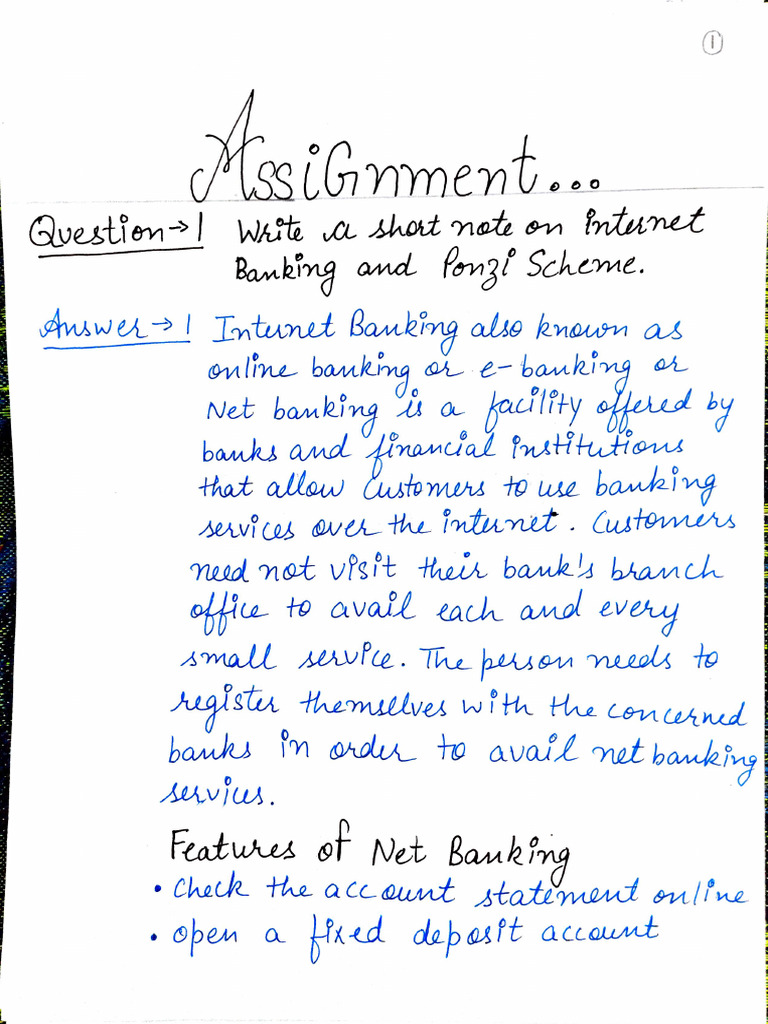 1
AssiGnment...
Question→1 Write a short note on internet
Banking and Ponzi Scheme.
Answer→1 Internet Banking also known as
online banking or e-banking or
Net banking is a facility offered by
banks and financial institutions
that allow customers to use banking
services over the internet. Customers
need not visit their bank's branch
office to avail each and every
small service. The person needs to
register themselves with the concerned
banks in order to avail net banking
services.
Features of Net Banking
• Check the account statement online
• open a fixed deposit account